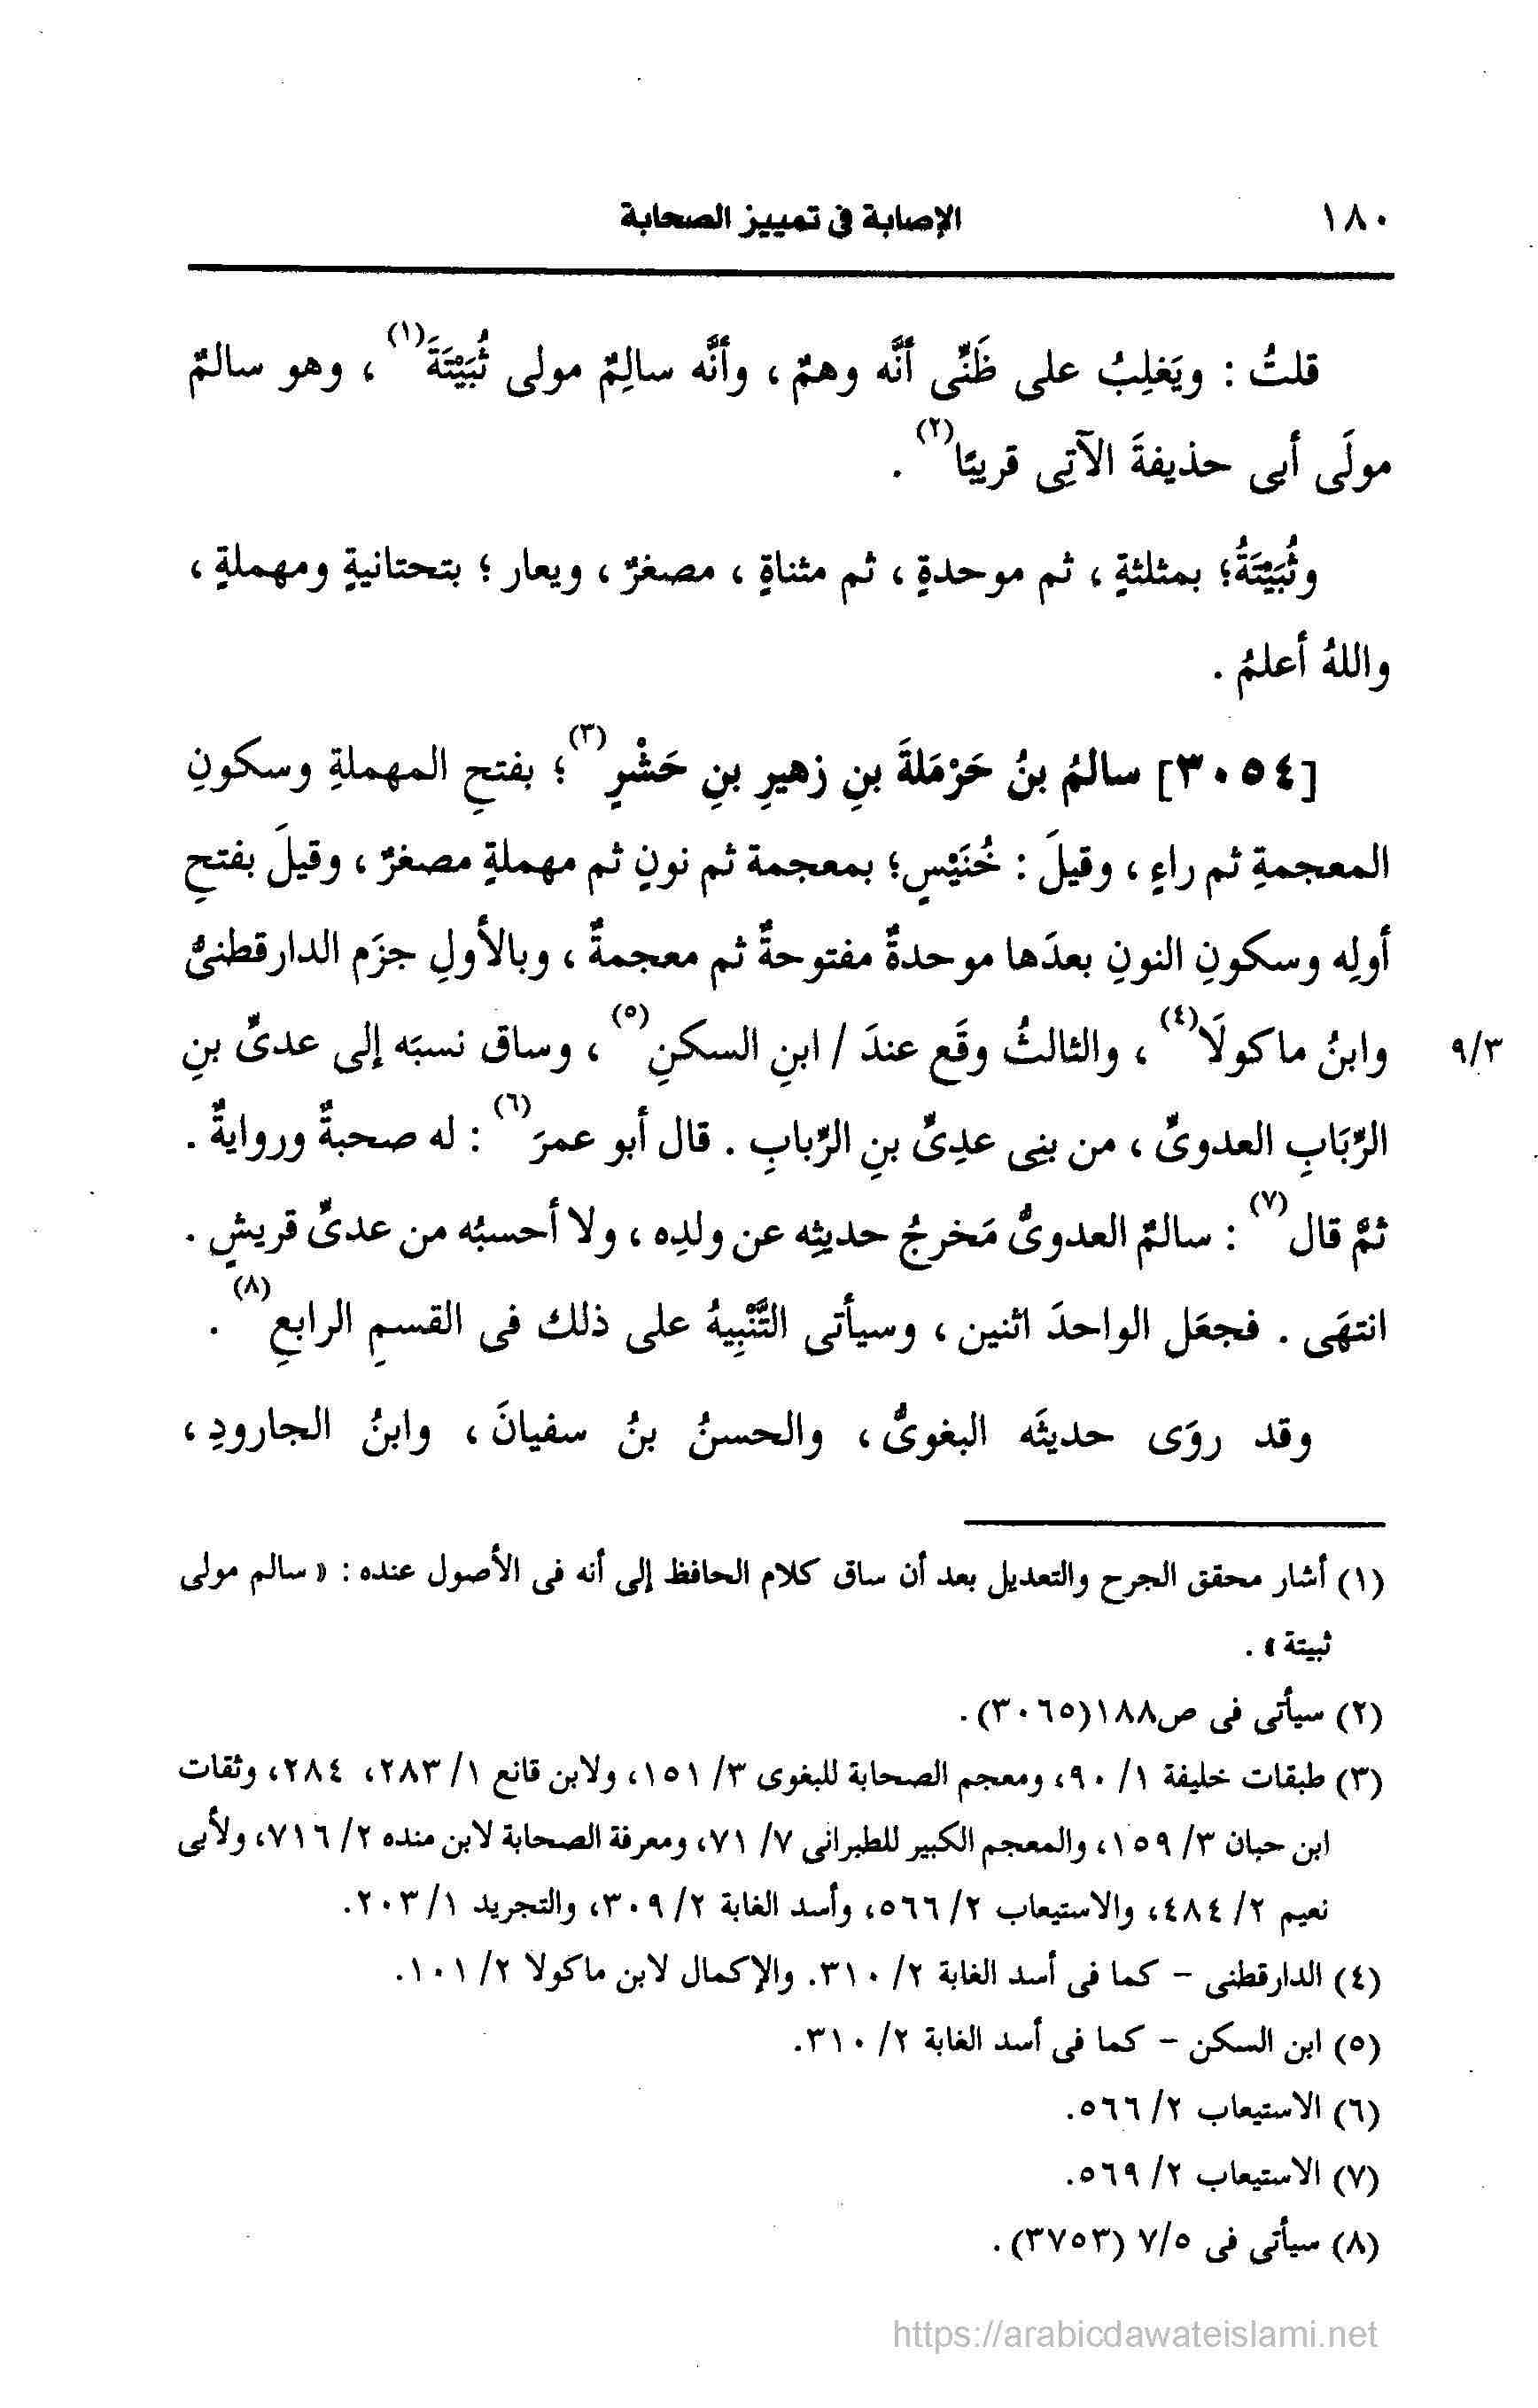 ١٨٠
الإصابة فى تمييز الصحابة
قلتُ : ويَغلِبُ على ظَنِّى أنَّه وهمٌ ، وأنَّه سالِمٌ مولى ثُبَيْتَةَ(١) ، وهو سالمٌ
مولَى أبى حذيفةَ الآتِى قريبًا(٢) .
وثُبَيْتَةُ؛ بمثلثةٍ ، ثم موحدةٍ ، ثم مثناةٍ ، مصغرٌ ، ويعار ؛ بتحتانيةٍ ومهملةٍ ،
واللهُ أعلمُ .
[٣٠٥٤] سالمُ بنُ حَرْمَلةَ بنِ زهيرِ بنِ حَشْرٍ(٣) ؛ بفتحِ المهملةِ وسكونِ
المعجمةِ ثم راءٍ ، وقيلَ : خُنَيْسٍ؛ بمعجمة ثم نونٍ ثم مهملةٍ مصغرٌ ، وقيلَ بفتحِ
أولِه وسكونِ النونِ بعدَها موحدةٌ مفتوحةٌ ثم معجمةٌ ، وبالأولِ جزَم الدارقطنىُّ
وابنُ ماكولَا(٤) ، والثالثُ وقَع عندَ / ابنِ السكنِ(٥) ، وساق نسبَه إلى عدىِّ بنِ
٩/٣
الرِّبَابِ العدوىِّ ، من بنِى عدِىِّ بنِ الرِّبابِ . قال أبو عمرَ(٦) : له صحبةٌ وروايةٌ .
ثمَّ قال(٧) : سالمٌ العدوىُّ مَخرجُ حديثِه عن ولدِه ، ولا أحسبُه من عدىِّ قريشٍ .
انتهَى . فجعَل الواحدَ اثنين ، وسيأتى التَّنْبِيهُ على ذلك فى القسمِ الرابعِ(٨) .
وقد روَى حديثَه البغوىُّ ، والحسنُ بنُ سفيانَ ، وابنُ الجارودِ ،
(١) أشار محقق الجرح والتعديل بعد أن ساق كلام الحافظ إلى أنه فى الأصول عنده : « سالم مولى
ثبيتة » .
(٢) سيأتى فى ص١٨٨(٣٠٦٥).
(٣) طبقات خليفة ١/ ٩٠، ومعجم الصحابة للبغوى ٣/ ١٥١، ولابن قانع ١/ ٢٨٣، ٢٨٤، وثقات
ابن حبان ٣/ ١٥٩، والمعجم الكبير للطبرانى ٧/ ٧١، ومعرفة الصحابة لابن منده ٢/ ٧١٦، ولأبى
نعيم ٢/ ٤٨٤، والاستيعاب ٢/ ٥٦٦، وأسد الغابة ٢/ ٣٠٩، والتجريد ١/ ٢٠٣.
(٤) الدارقطنى - كما فى أسد الغابة ٢/ ٣١٠. والإكمال لابن ماكولا ٢/ ١٠١.
(٥) ابن السكن - كما فى أسد الغابة ٢/ ٣١٠.
(٦) الاستيعاب ٢/ ٥٦٦.
(٧) الاستيعاب ٢/ ٥٦٩.
(٨) سيأتى فى ٧/٥ (٣٧٥٣).
https://arabicdawateislami.net